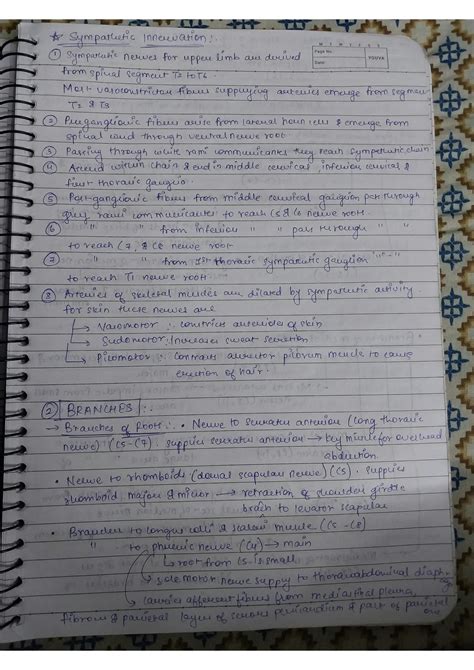 * Sympathetic Innervation :-
M T W T F S S
Page No.:
Date:
YOUVA
① Sympathetic nerves for upper limb are derived
from spinal segment T2 to T6.
Most vasoconstriction fibres supplying arteries emerge from segment
T2 & T3
② Preganglionic fibres arise from lateral horn cells & emerge from
spinal cord through ventral nerve root
③ Passing through white rami communicantes they reach sympathetic chain
④ Ascend within chain & end in middle cervical, inferior cervical &
first thoracic ganglia
⑤ Post-ganglionic fibres from middle cervical ganglion pass through
grey rami communicantes to reach C5 & C6 nerve root.
⑥ " " from inferior " " pass through "
to reach C7, & C8 nerve root
⑦ " " from 1st thoracic sympathetic ganglion " - "
to reach T1 nerve root
⑧ Arteries of skeletal muscles are dilated by sympathetic activity.
for skin these nerves are
→ Vasomotor :- constricts arterioles of skin
→ Sudomotor : Increases sweat secretion
→ Pilomotor :- Contracts arrector pilorum muscle to cause
erection of hair.
② BRANCHES :-
→ Branches of Roots :- • Nerve to serratus anterior (long thoracic
nerve) (C5-C7) : supplies serratus anterior → key muscle for overhead
abduction
• Nerve to rhomboids (dorsal scapular nerve) (C5) . supplies
rhomboid major & minor → retraction of shoulder girdle
to levator scapulae
• Branches to longus colli & scaleni muscle (C5-C8)
" to phrenic nerve (C4) → main
↳ root from C5 is small
→ sole motor nerve supply to thoracoabdominal diaphragm
→ carries afferent fibres from mediastinal pleura,
fibrous & parietal layer of serous pericardium & part of parietal